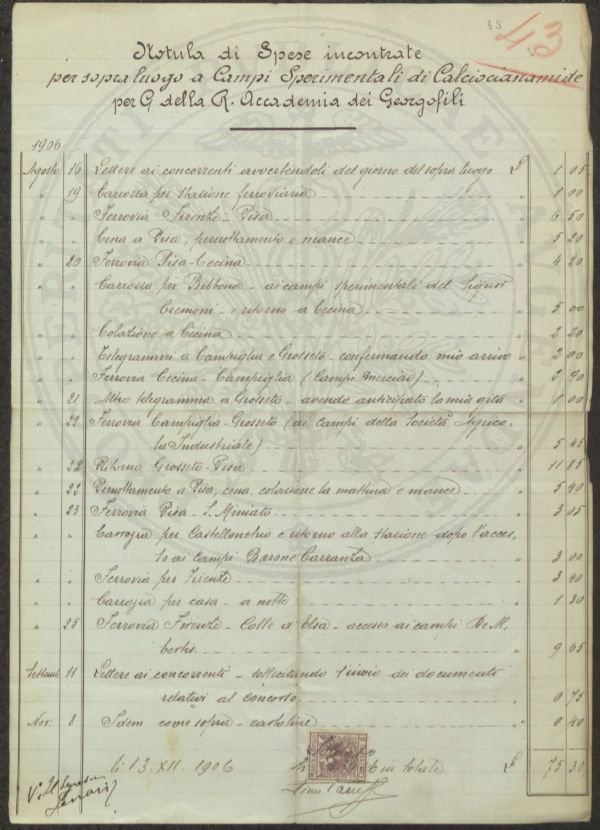 48
43
Notula di Spese incontrate
per sopraluogo a Campi Sperimentali di Calciocianamide
per G della R. Accademia dei Georgofili
1906
Agosto 16 Lettere ai concorrenti avvertendoli del giorno del sopraluogo £ 1 05
" 19 Carrozza per stazione ferroviaria " 1 00
" " Ferrovia Firenze-Pisa " 6 50
" " Cena a Pisa, pernottamento e mance " 5 20
" 20 Ferrovia Pisa-Cecina " 4 20
" " Carrozza per Bibbona - ai campi sperimentali del Sigori
Cremoni - e ritorno a Cecina " 5 00
" " Colazione a Cecina " 2 20
" " Telegrammi a Campiglia e Grosseto - confermando mio arrivo " 2 00
" " Ferrovia Cecina - Campiglia (Campi Merciai) " 2 90
" 21 Altro telegramma a Grosseto - avendo anticipato la mia gita " 1 00
" 22 Ferrovia Campiglia-Grosseto (ai campi della Società Agrico-
la Industriale) " 5 45
" 22 Ritorno Grosseto-Pisa " 11 85
" 22 Pernottamento a Pisa, cena, colazione la mattina e mance " 5 40
" 23 Ferrovia Pisa - S. Miniato " 3 05
" " Carrozza per Castellonchio e ritorno alla stazione dopo l'acces-
so ai campi Barone Carranza " 3 00
" " Ferrovia per Firenze " 3 40
" " Carrozza per casa - a notte " 1 30
" 25 Ferrovia Firenze - Colle d'Elsa - accesso ai campi
" 9 65
Settemb. 11 Lettere ai concorrenti - sollecitando l'invio dei documenti
relativi al concorso " 0 75
Nov: 8 Idem come sopra - cartoline " 0 40
li 13. XII. 1906 in totale £ 75 30